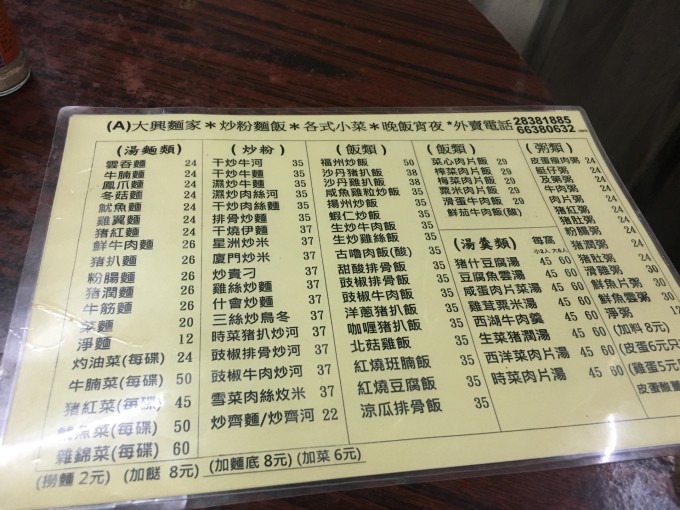 (A)大興麵家＊炒粉麵飯＊各式小菜＊晚飯宵夜*外賣電話 28381885
66380632
(湯麵類)
雲吞麵 24
牛腩麵 24
鳳爪麵 24
冬菇麵 24
魷魚麵 24
雞翼麵 24
猪紅麵 24
鮮牛肉麵 26
猪扒麵 26
粉腸麵 26
猪潤麵 26
牛筋麵 26
菜麵 20
淨麵 12
灼油菜(每碟) 24
牛腩菜(每碟) 50
猪紅菜(每碟) 45
魷魚菜(每碟) 50
雜錦菜(每碟) 60
(炒粉)
干炒牛河 35
干炒牛麵 35
濕炒牛河 35
濕炒肉絲河 35
干炒肉絲麵 35
排骨炒麵 35
干燒伊麵 35
星洲炒米 37
廈門炒米 37
炒貴刁 37
雞絲炒麵 37
什會炒麵 37
三絲炒烏冬 37
時菜猪扒炒河 37
豉椒排骨炒河 37
豉椒牛肉炒河 37
雪菜肉絲炆米 37
炒齊麵/炒齊河 22
(飯類)
福州炒飯 50
沙丹猪扒飯 38
沙丹雞扒飯 38
咸魚雞粒炒飯 38
揚州炒飯 35
蝦仁炒飯 35
生炒牛肉飯 35
生炒雞絲飯 35
古嚕肉飯(酸) 35
甜酸排骨飯 35
豉椒排骨飯 35
豉椒牛肉飯 35
洋蔥猪扒飯 35
咖喱猪扒飯 35
北菇雞飯 35
紅燒班腩飯 35
紅燒豆腐飯 35
涼瓜排骨飯 35
(飯類)
菜心肉片飯 29
榨菜肉片飯 29
梅菜肉片飯 29
粟米肉片飯 29
滑蛋牛肉飯 29
鮮茄牛肉飯(酸)
(湯羹類) 每窩
小2人 大4人
猪什豆腐湯 45 60
豆腐魚雲湯 45 60
咸蛋肉片菜湯 45 60
雞茸粟米湯 45 60
西湖牛肉羹 45 60
生菜猪潤湯 45 60
西洋菜肉片湯 45 60
時菜肉片湯 45 60
(粥類)
皮蛋瘦肉粥 24
艇仔粥 24
及第粥 24
牛肉粥 24
肉片粥 24
猪紅粥 24
猪肚粥 24
粉腸粥 24
猪潤粥 24
猪肚粥 24
滑雞粥 30
鮮魚片粥 30
鮮魚雲粥 30
淨粥 12
(加料 8元)
(皮蛋6元只
(雞蛋5元
皮蛋酸薑
(撈麵 2元) (加餸 8元) (加麵底 8元) (加菜 6元)